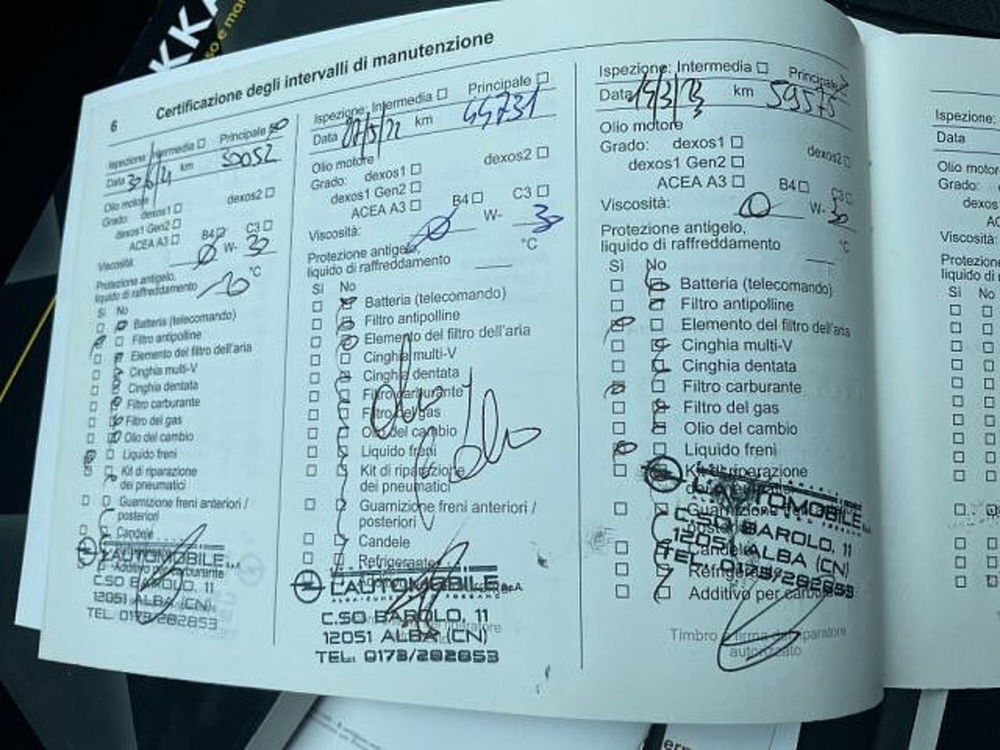 KKA
o e ma
6 Certificazione degli intervalli di manutenzione
Ispezione: Intermedia ☐ Principale
Data km 30052
Olio motore
Grado: dexos1 ☐ dexos2 ☐
dexos1 Gen2 ☐
ACEA A3 ☐ B4 ☐ C3 ☐
Viscosità: 0 W- 30
Protezione antigelo,
liquido di raffreddamento °C
Sì No
Batteria (telecomando)
Filtro antipolline
Elemento del filtro dell'aria
Cinghia multi-V
Cinghia dentata
Filtro carburante
Filtro del gas
Olio del cambio
Liquido freni
Kit di riparazione
dei pneumatici
Guarnizione freni anteriori /
posteriori
Candele
Additivo per carburante
L'AUTOMOBILE S.p.A
C.SO BAROLO, 11
12051 ALBA (CN)
TEL. 0173/282853
Ispezione: Intermedia ☐ Principale ☐
Data km 44731
Olio motore
Grado: dexos1 ☐ dexos2 ☐
dexos1 Gen2 ☐
ACEA A3 ☐ B4 ☐ C3 ☐
Viscosità: 0 W- 30
Protezione antigelo,
liquido di raffreddamento °C
Sì No
Batteria (telecomando)
Filtro antipolline
Elemento del filtro dell'aria
Cinghia multi-V
Cinghia dentata
Filtro carburante
Filtro del gas
Olio del cambio
Liquido freni
Kit di riparazione
dei pneumatici
Guarnizione freni anteriori /
posteriori
Candele
Refrigerante
L'AUTOMOBILE S.p.A
C.SO BAROLO, 11
12051 ALBA (CN)
TEL. 0173/282853
Ispezione: Intermedia ☐ Principale
Data km 59575
Olio motore
Grado: dexos1 ☐ dexos2 ☐
dexos1 Gen2 ☐
ACEA A3 ☐ B4 ☐ C3 ☐
Viscosità: 0 W- 30
Protezione antigelo,
liquido di raffreddamento °C
Sì No
Batteria (telecomando)
Filtro antipolline
Elemento del filtro dell'aria
Cinghia multi-V
Cinghia dentata
Filtro carburante
Filtro del gas
Olio del cambio
Liquido freni
Kit di riparazione
L'AUTOMOBILE S.p.A
C.SO BAROLO, 11
12051 ALBA (CN)
TEL. 0173/282853
Candele
Refrigerante
Additivo per carburante
Timbro e firma del riparatore
autorizzato
Ispezione:
Data
Olio motore
Grado: dexos
dexos1
ACEA
Viscosità:
Protezione
liquido di r
Sì No